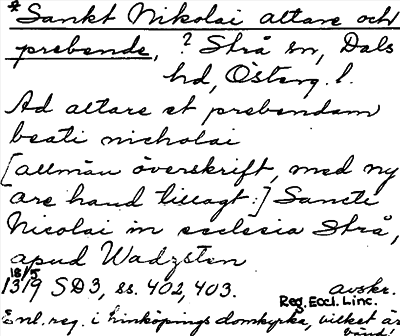 *Sankt Nikolai altare och
prebende, ? Strå sn, Dals
hd, Österg. l.
Ad altare et prebendam
beati nicholai
[allmän överskrift, med ny
are hand tillagt:] Sancti
Nicolai in ecclesia Strå,
apud Wadzsten
18/5
1319 SD3, ss. 402, 403. avskr.
Reg. Eccl. Linc.
Enl. reg. i Linköpings domkyrka, vilket är